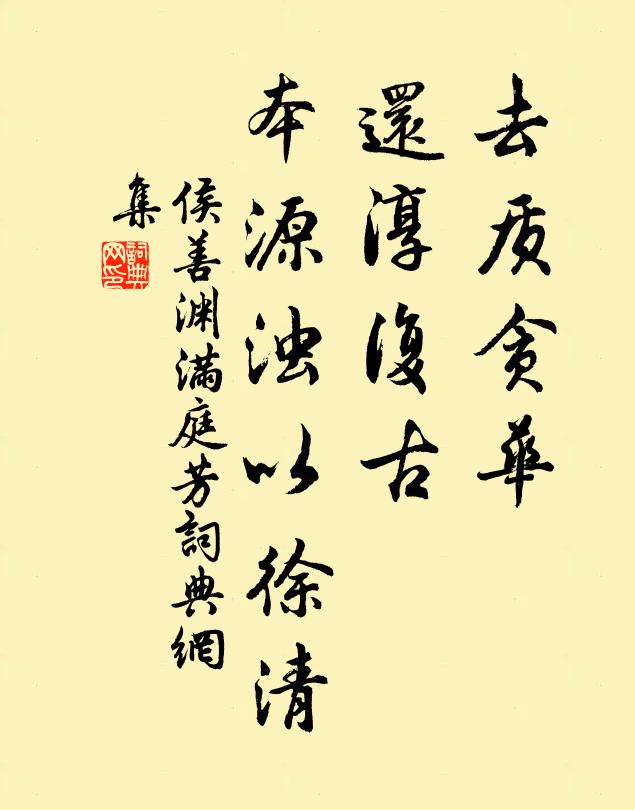 去质贪華
還淳復古
本源浊以徐清
侯善渊满庭芳詞典網
集
詞典網印